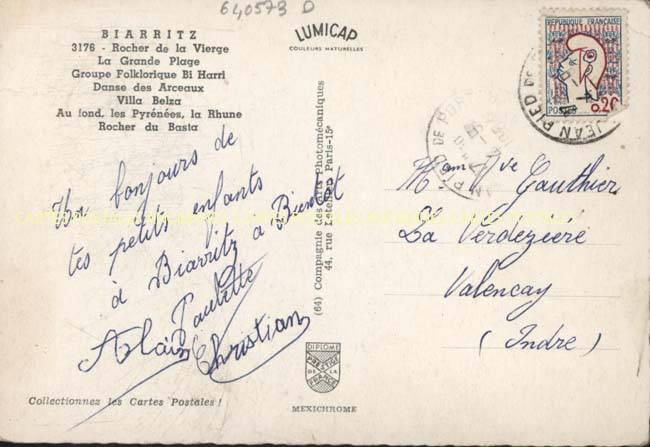 640573 D
BIARRITZ
3176 - Rocher de la Vierge
La Grande Plage
Groupe Folklorique Bi Harri
Danse des Arceaux
Villa Belza
Au fond, les Pyrénées, la Rhune
Rocher du Basta
LUMICAP
COULEURS NATURELLES
Un bonjours de
tes petits enfants
à Biarritz a Bientot
Paulette
Alain Christian
Collectionnez les Cartes Postales !
(64) Compagnie des Arts Photomécaniques
44, rue Letellier, Paris-15e
DIPLOME
PRESTIGE
DE LA
FRANCE
MEXICHROME
REPUBLIQUE FRANÇAISE
POSTES 0,20
JEAN PIED DE
Mme Vve Gauthier
La Verdeziere
Valencay
(Indre)